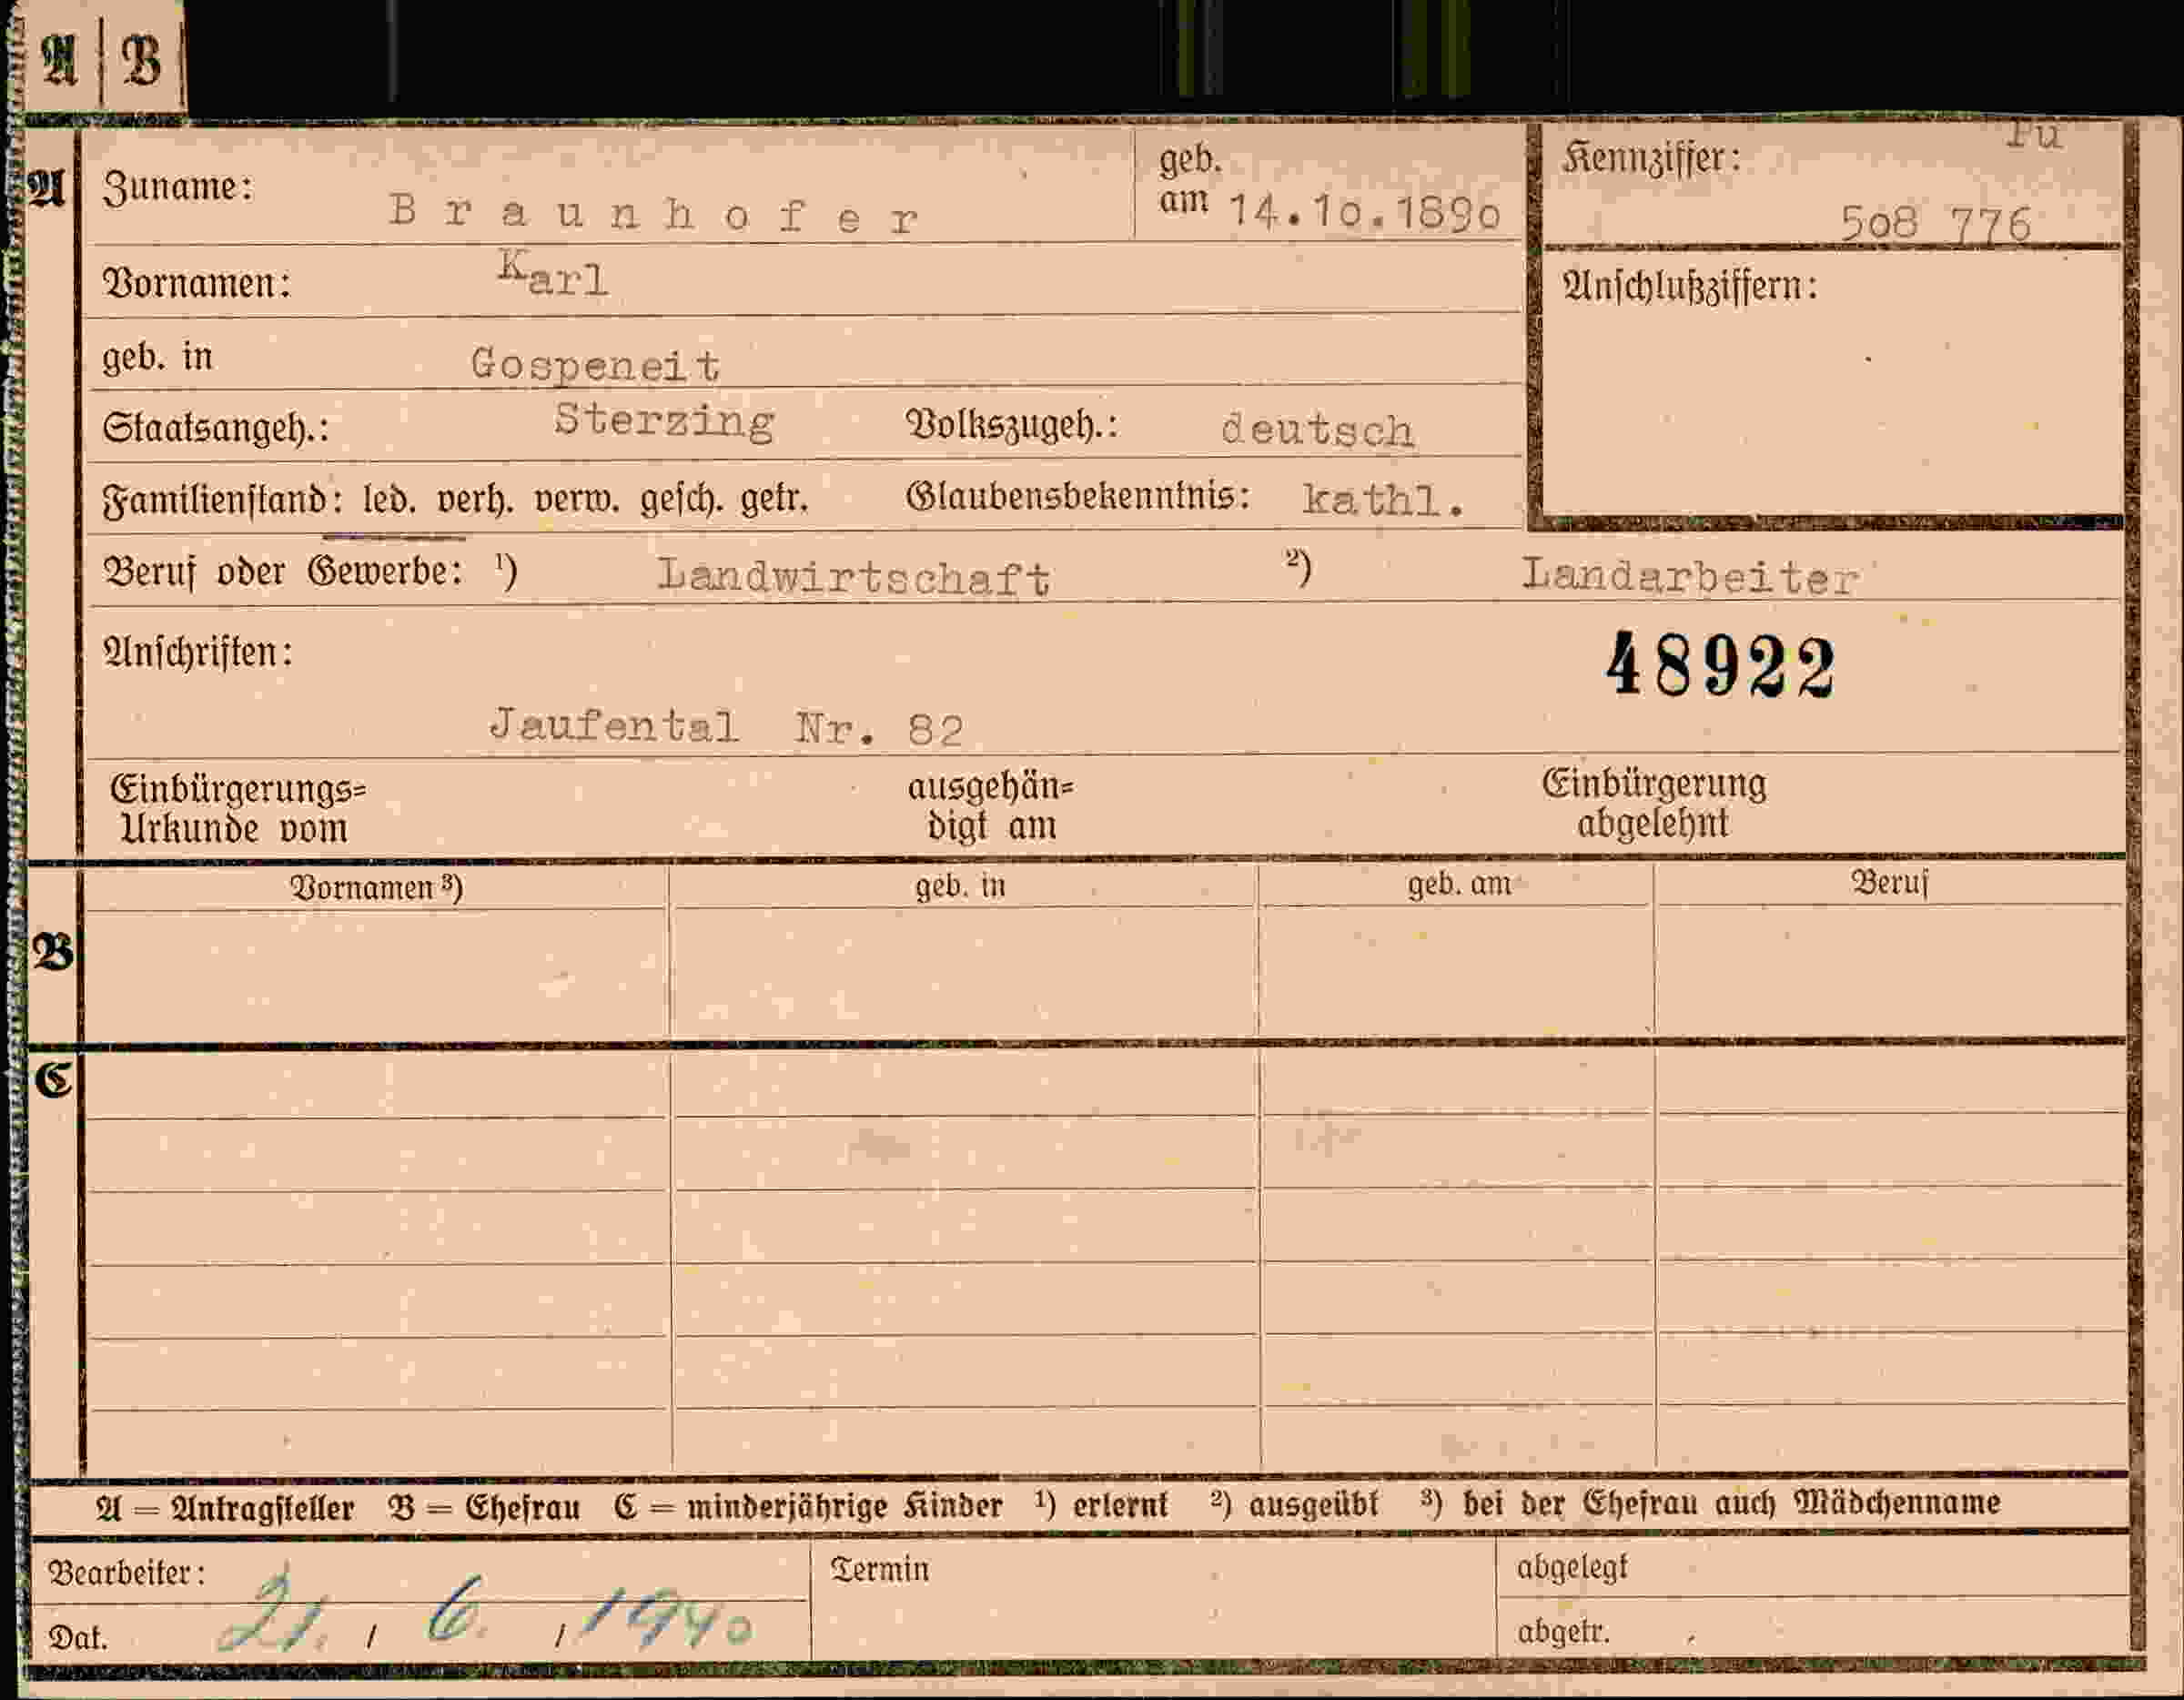 A | B
Pu
A Zuname: Braunhofer geb. am 14.10.1890 Kennziffer: 508 776
Vornamen: Karl Anschlußziffern:
geb. in Gospeneit
Staatsangeh.: Sterzing Volkszugeh.: deutsch
Familienstand: led. verh. verw. gesch. getr. Glaubensbekenntnis: kathl.
Beruf oder Gewerbe: ¹) Landwirtschaft ²) Landarbeiter
Anschriften: 48922
Jaufental Nr. 82
Einbürgerungs= ausgehän= Einbürgerung
Urkunde vom digt am abgelehnt
Vornamen ³) geb. in geb. am Beruf
B
C
A = Antragsteller B = Ehefrau C = minderjährige Kinder ¹) erlernt ²) ausgeübt ³) bei der Ehefrau auch Mädchenname
Bearbeiter: Termin abgelegt
Dat. 21. / 6. / 1940 abgetr.